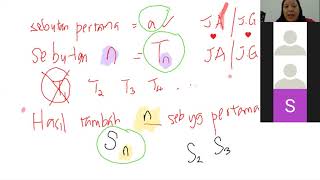 sebutan pertama = a JA/JG
Sebutan n = Tn JA/JG
T2 T3 T4 ...
Hasil tambah n sebutan pertama
Sn S2 S3
S